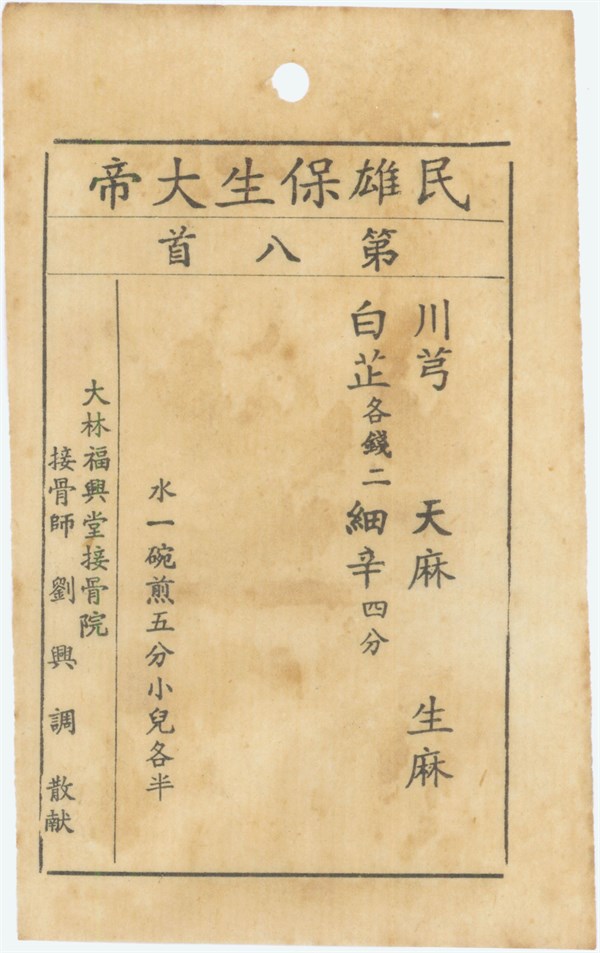 民雄保生大帝
第八首
川芎 天麻 生麻
白芷各錢二 細辛四分
水一碗煎五分小兒各半
大林福興堂接骨院
接骨師 劉興調 散献